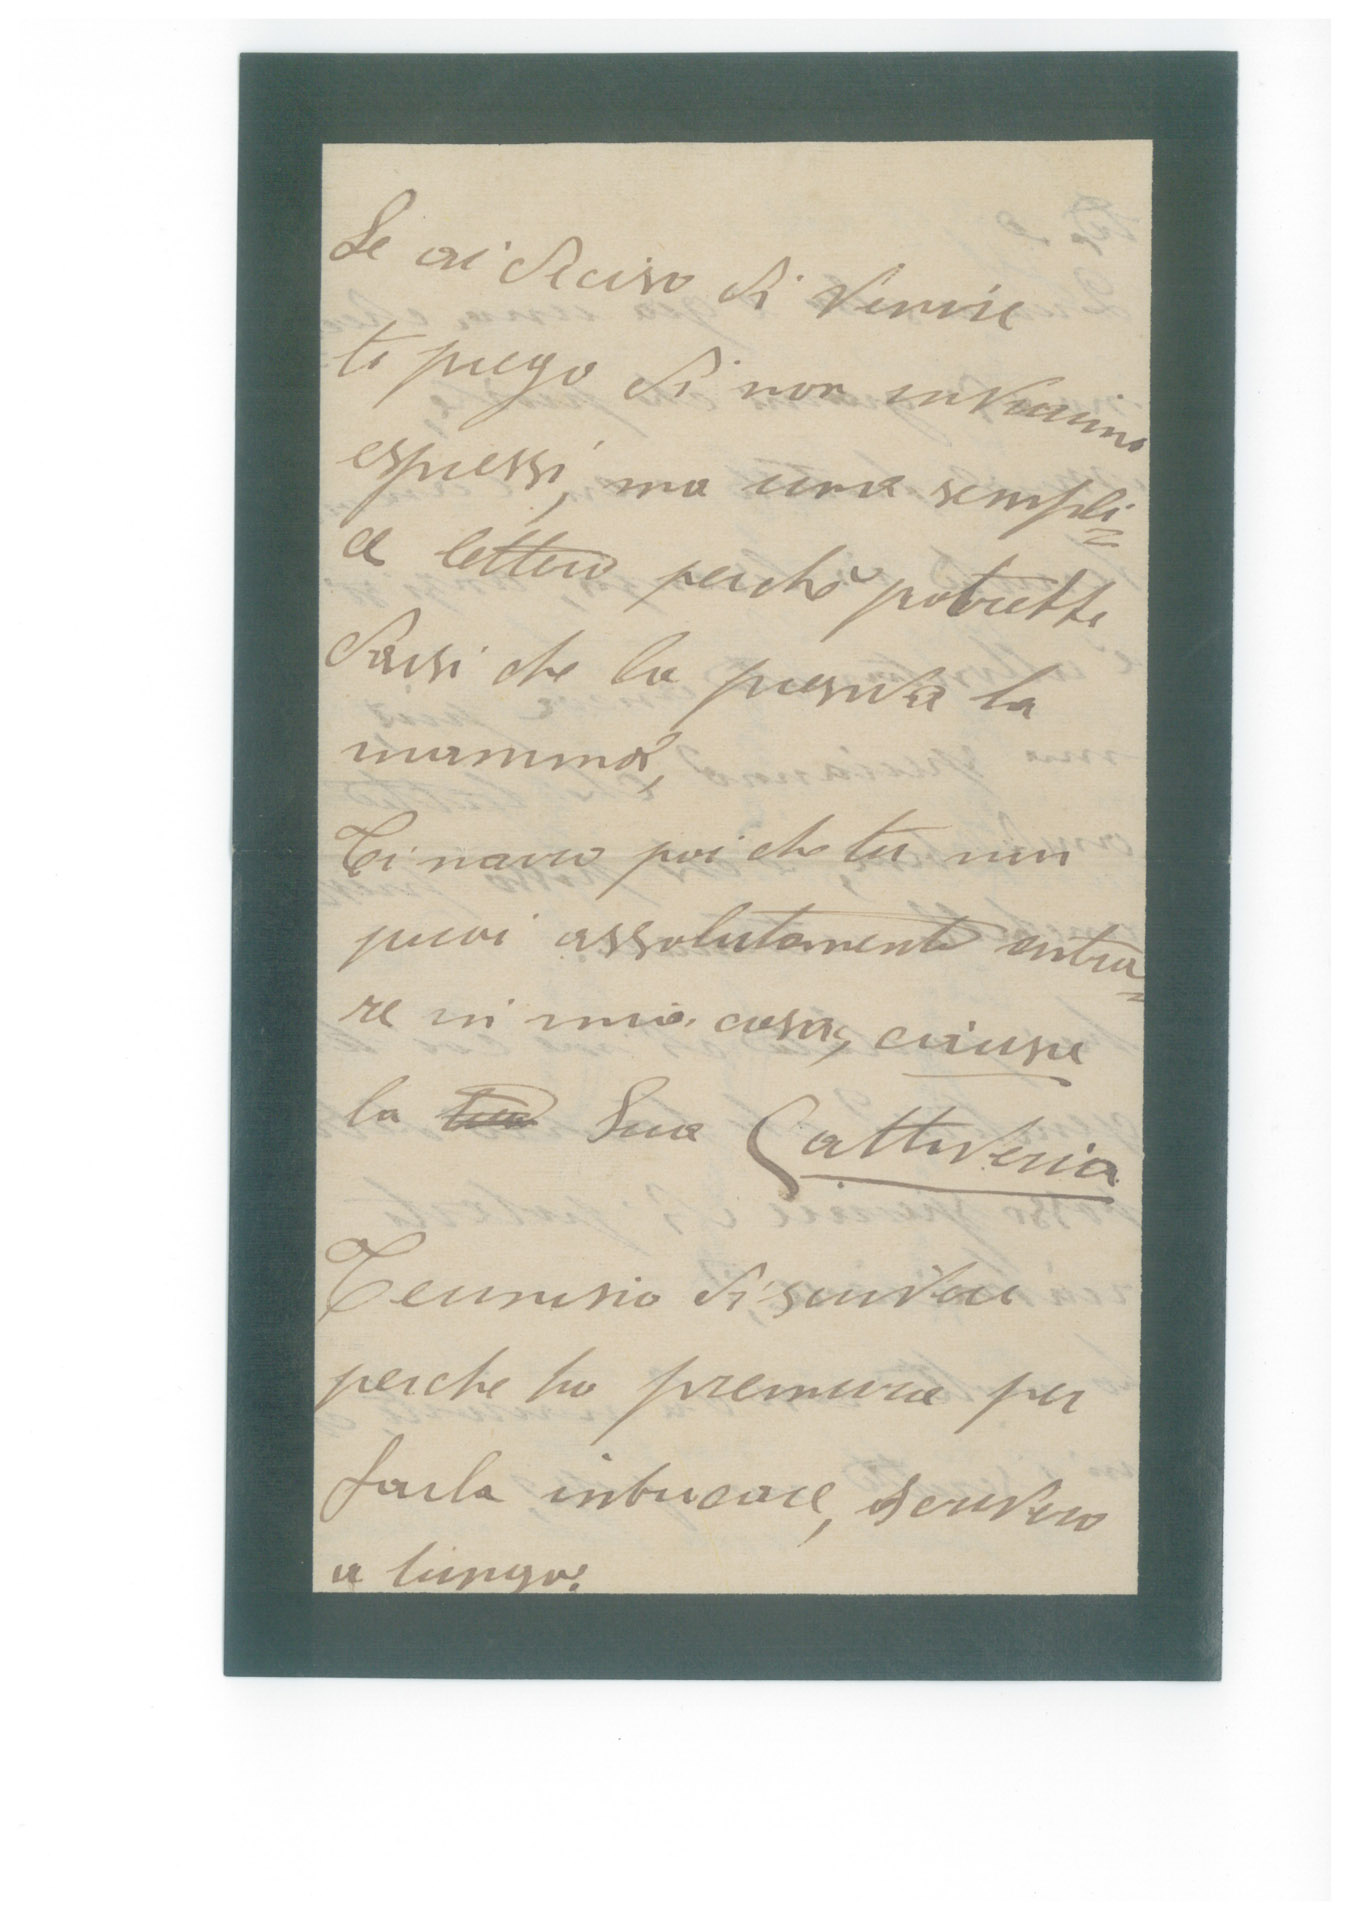 Se ai deciso di venire
ti prego di non inviarmi
espressi, ma una sempli=
ce lettera perchè potrebbe
darsi che la prenda la
mamma,
Ti narro poi che tu non
puoi assolutamente entra=
re in mia casa, causa
la tua Sua Cattiveria
Termino di scrivere
perche ho premura per
farla imbucare, scriverò
a lungo.